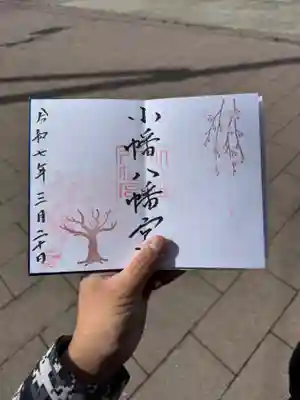 小幡八幡宮
令和七年三月二十日